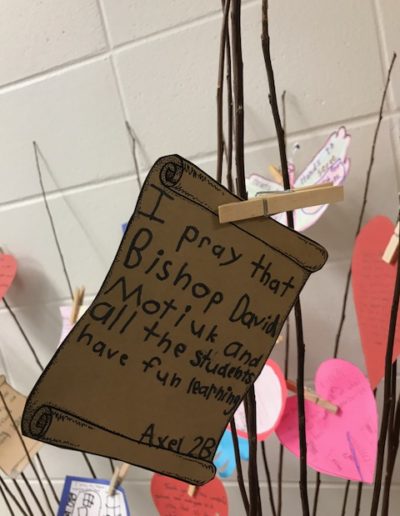 I pray that
Bishop David
Motiuk and
all the students
have fun learning
Axel 2B